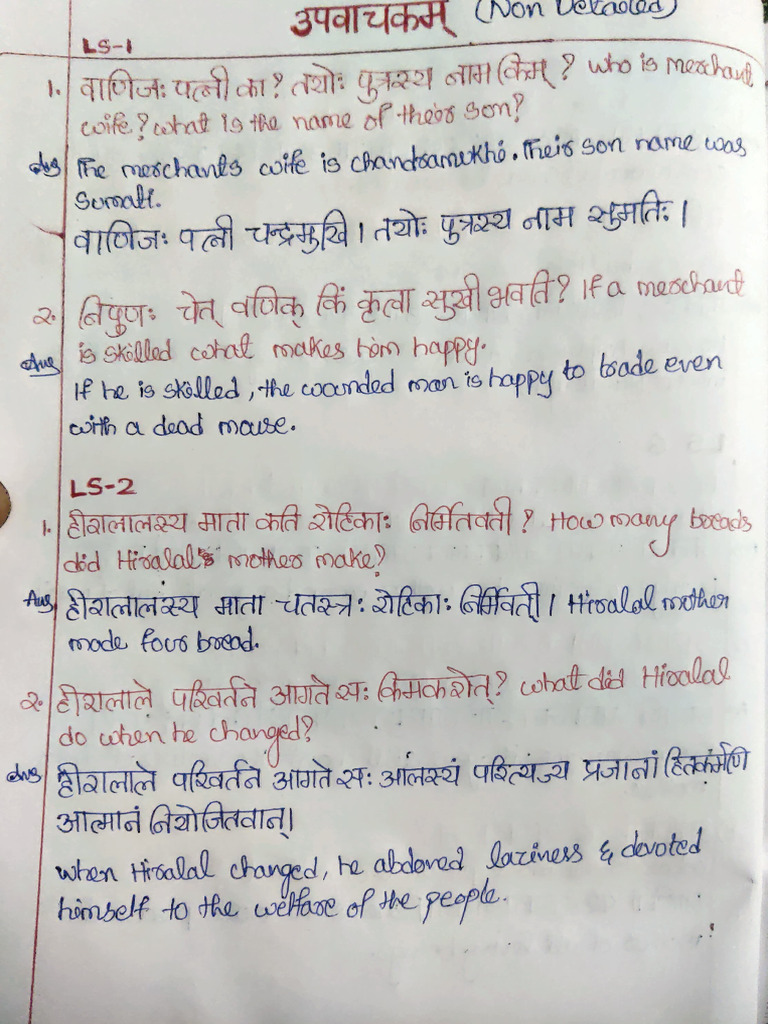 उपवाचकम् (Non Detailed)
LS-1
1. वाणिजः पत्नी का? तयोः पुत्रस्य नाम किम् ? who is merchant
wife? what is the name of their son?
Ans The merchants wife is chandramukhi. Their son name was
Sumati.
वाणिजः पत्नी चन्द्रमुखि। तयोः पुत्रस्य नाम सुमतिः।
2. निपुणः चेत् वणिक् किं कृत्वा सुखी भवति? If a merchant
is skilled what makes him happy.
Ans If he is skilled, the wounded man is happy to trade even
with a dead mouse.
LS-2
1. हीरालालस्य माता कति रोटिकाः निर्मितवती? How many breads
did Hiralal's mother make?
Ans हीरालालस्य माता चतस्त्रः रोटिकाः निर्मिवती। Hiralal mother
made four bread.
2. हीरालाले परिवर्तने आगते सः किमकरोत्? what did Hiralal
do when he changed?
Ans हीरालाले परिवर्तने आगते सः आलस्यं परित्यज्य प्रजानां हितकर्मणि
आत्मानं नियोजितवान्।
when Hiralal changed, he abdoned laziness & devoted
himself to the welfare of the people.